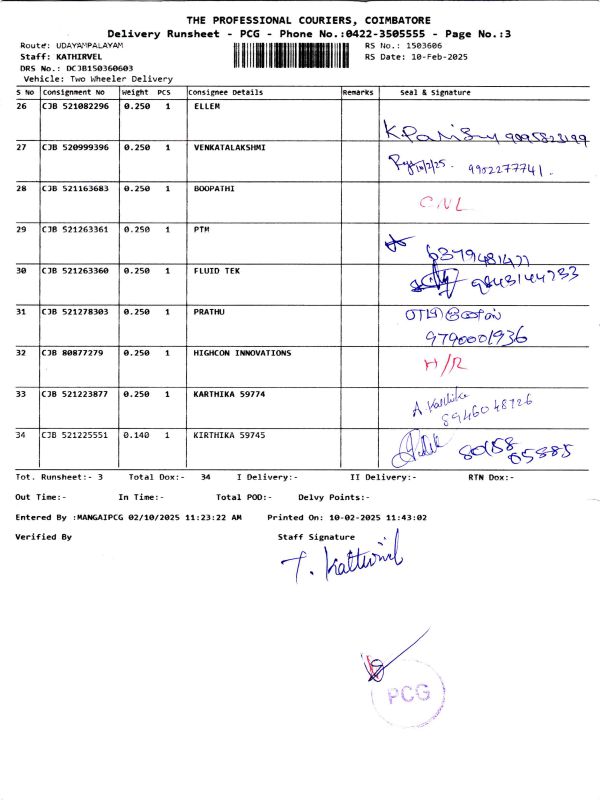 THE PROFESSIONAL COURIERS, COIMBATORE
Delivery Runsheet - PCG - Phone No.:0422-3505555 - Page No.:3
Route: UDAYAMPALAYAM RS No.: 1503606
Staff: KATHIRVEL RS Date: 10-Feb-2025
DRS No.: DCJB150360603
Vehicle: Two Wheeler Delivery
S No Consignment No Weight PCS Consignee Details Remarks Seal & Signature
26 CJB 521082296 0.250 1 ELLEM
27 CJB 520999396 0.250 1 VENKATALAKSHMI
10/2/25. 9902277741.
28 CJB 521163683 0.250 1 BOOPATHI
CNL
29 CJB 521263361 0.250 1 PTM
6379481477
30 CJB 521263360 0.250 1 FLUID TEK
9843144733
31 CJB 521278303 0.250 1 PRATHU
9790001936
32 CJB 80877279 0.250 1 HIGHCON INNOVATIONS
H/R
33 CJB 521223877 0.250 1 KARTHIKA 59774
A Karthika
8946048726
34 CJB 521225551 0.140 1 KIRTHIKA 59745
80158
05885
Tot. Runsheet:- 3 Total Dox:- 34 I Delivery:- II Delivery:- RTN Dox:-
Out Time:- In Time:- Total POD:- Delvy Points:-
Entered By :MANGAIPCG 02/10/2025 11:23:22 AM Printed On: 10-02-2025 11:43:02
Verified By Staff Signature
T. Kathirvel
PCG